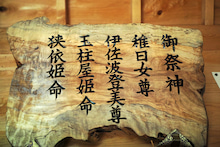 御祭神
稚日女尊
伊佐波登美尊
玉柱屋姫命
狭依姫命